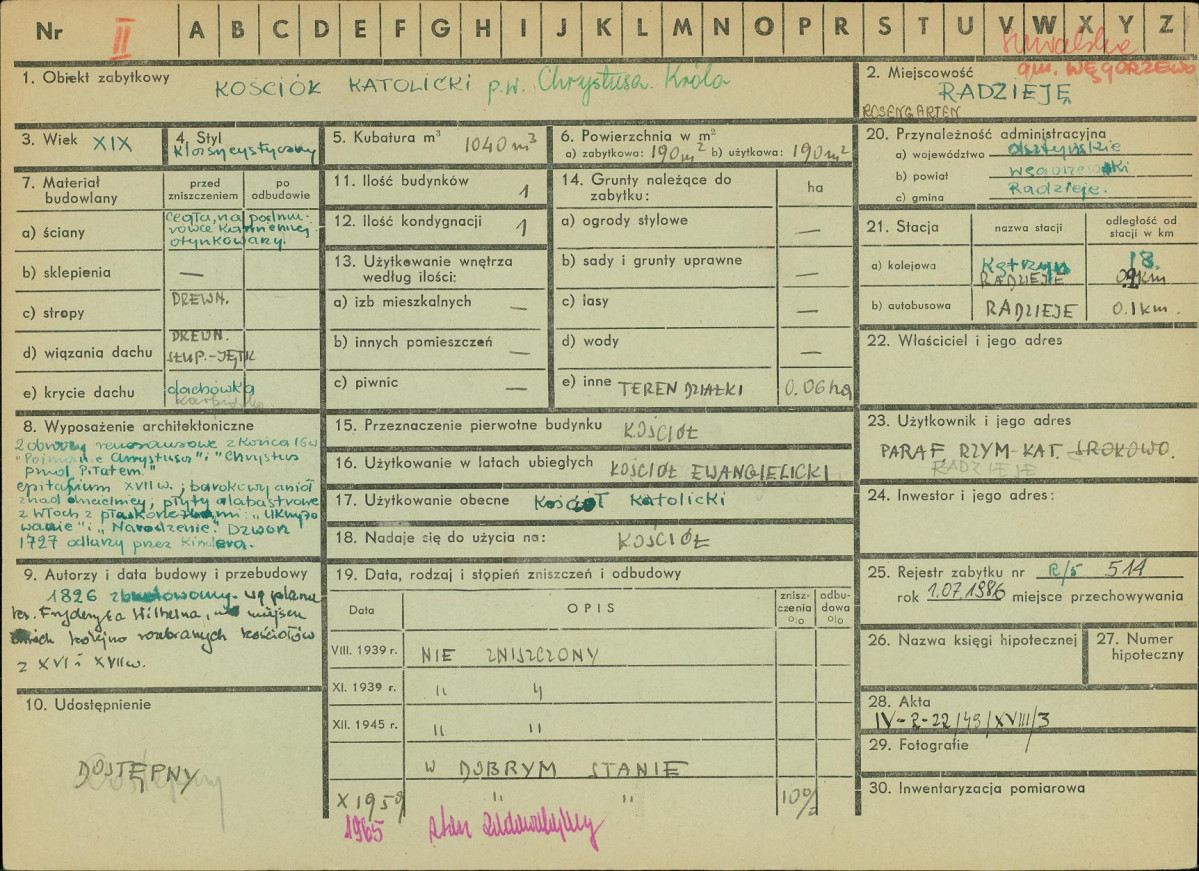 Nr II A B C D E F G H I J K L M N O P R S T U V W X Y Z
suwalskie
gm. WĘGORZEWO
1. Obiekt zabytkowy KOŚCIÓŁ KATOLICKI p.w. Chrystusa Króla
2. Miejscowość
RADZIEJE
ROSENGARTEN
3. Wiek XIX
4. Styl
klasycystyczny
5. Kubatura m³ 1040 m³
6. Powierzchnia w m²
a) zabytkowa: 190 m² b) użytkowa: 190 m²
20. Przynależność administracyjna
a) województwo olsztyńskie
b) powiat węgorzewski
c) gmina Radzieje.
7. Materiał budowlany
przed zniszczeniem
po odbudowie
a) ściany
cegła, na podmu-
rówce kamiennej
otynkowany.
b) sklepienia —
c) stropy DREWN.
d) wiązania dachu DREWN.
SŁUP.-JĘTK
e) krycie dachu dachówka
karpiówka
11. Ilość budynków 1
12. Ilość kondygnacji 1
13. Użytkowanie wnętrza
według ilości:
a) izb mieszkalnych —
b) innych pomieszczeń —
c) piwnic —
14. Grunty należące do
zabytku:
ha
a) ogrody stylowe —
b) sady i grunty uprawne —
c) lasy —
d) wody —
e) inne TEREN DZIAŁKI 0.06 ha
21. Stacja
nazwa stacji
odległość od
stacji w km
a) kolejowa Kętrzyn 18.
RADZIEJE km
b) autobusowa RADZIEJE 0.1 km.
22. Właściciel i jego adres
8. Wyposażenie architektoniczne
2 obrazy renesansowe z końca 16 w
"Pojmanie Chrystusa" i "Chrystus
przed Piłatem"
epitafium XVII w.; barokowy anioł
znad chrzcielnicy; płyty alabastrowe
z Włoch z płaskorzeźbami: "Ukrzyżo
wanie" i "Narodzenie". Dzwon
1727 odlany przez Kindera.
15. Przeznaczenie pierwotne budynku KOŚCIÓŁ
16. Użytkowanie w latach ubiegłych KOŚCIÓŁ EWANGIELICKI
17. Użytkowanie obecne KOŚCIÓŁ KATOLICKI
18. Nadaje się do użycia na: KOŚCIÓŁ
23. Użytkownik i jego adres
PARAF RZYM-KAT. SROKOWO.
RADZIEJE
24. Inwestor i jego adres:
9. Autorzy i data budowy i przebudowy
1826 zbudowany wg planu
ks. Fryderyka Wilhelma, na miejscu
kolejno rozebranych kościołów
z XVI i XVII w.
19. Data, rodzaj i stopień zniszczeń i odbudowy
Data
OPIS
znisz-
czenia
o|o
odbu-
dowa
o|o
VIII. 1939 r. NIE ZNISZCZONY
XI. 1939 r. " "
XII. 1945 r. " "
W DOBRYM STANIE
X 1959 " " 10%
1965 stan zadowalający
25. Rejestr zabytku nr R/5 514
rok 1.07.1986 miejsce przechowywania
26. Nazwa księgi hipotecznej
27. Numer
hipoteczny
28. Akta
IV-2-22/49/XVIII/3
29. Fotografie
30. Inwentaryzacja pomiarowa
10. Udostępnienie
DOSTĘPNY